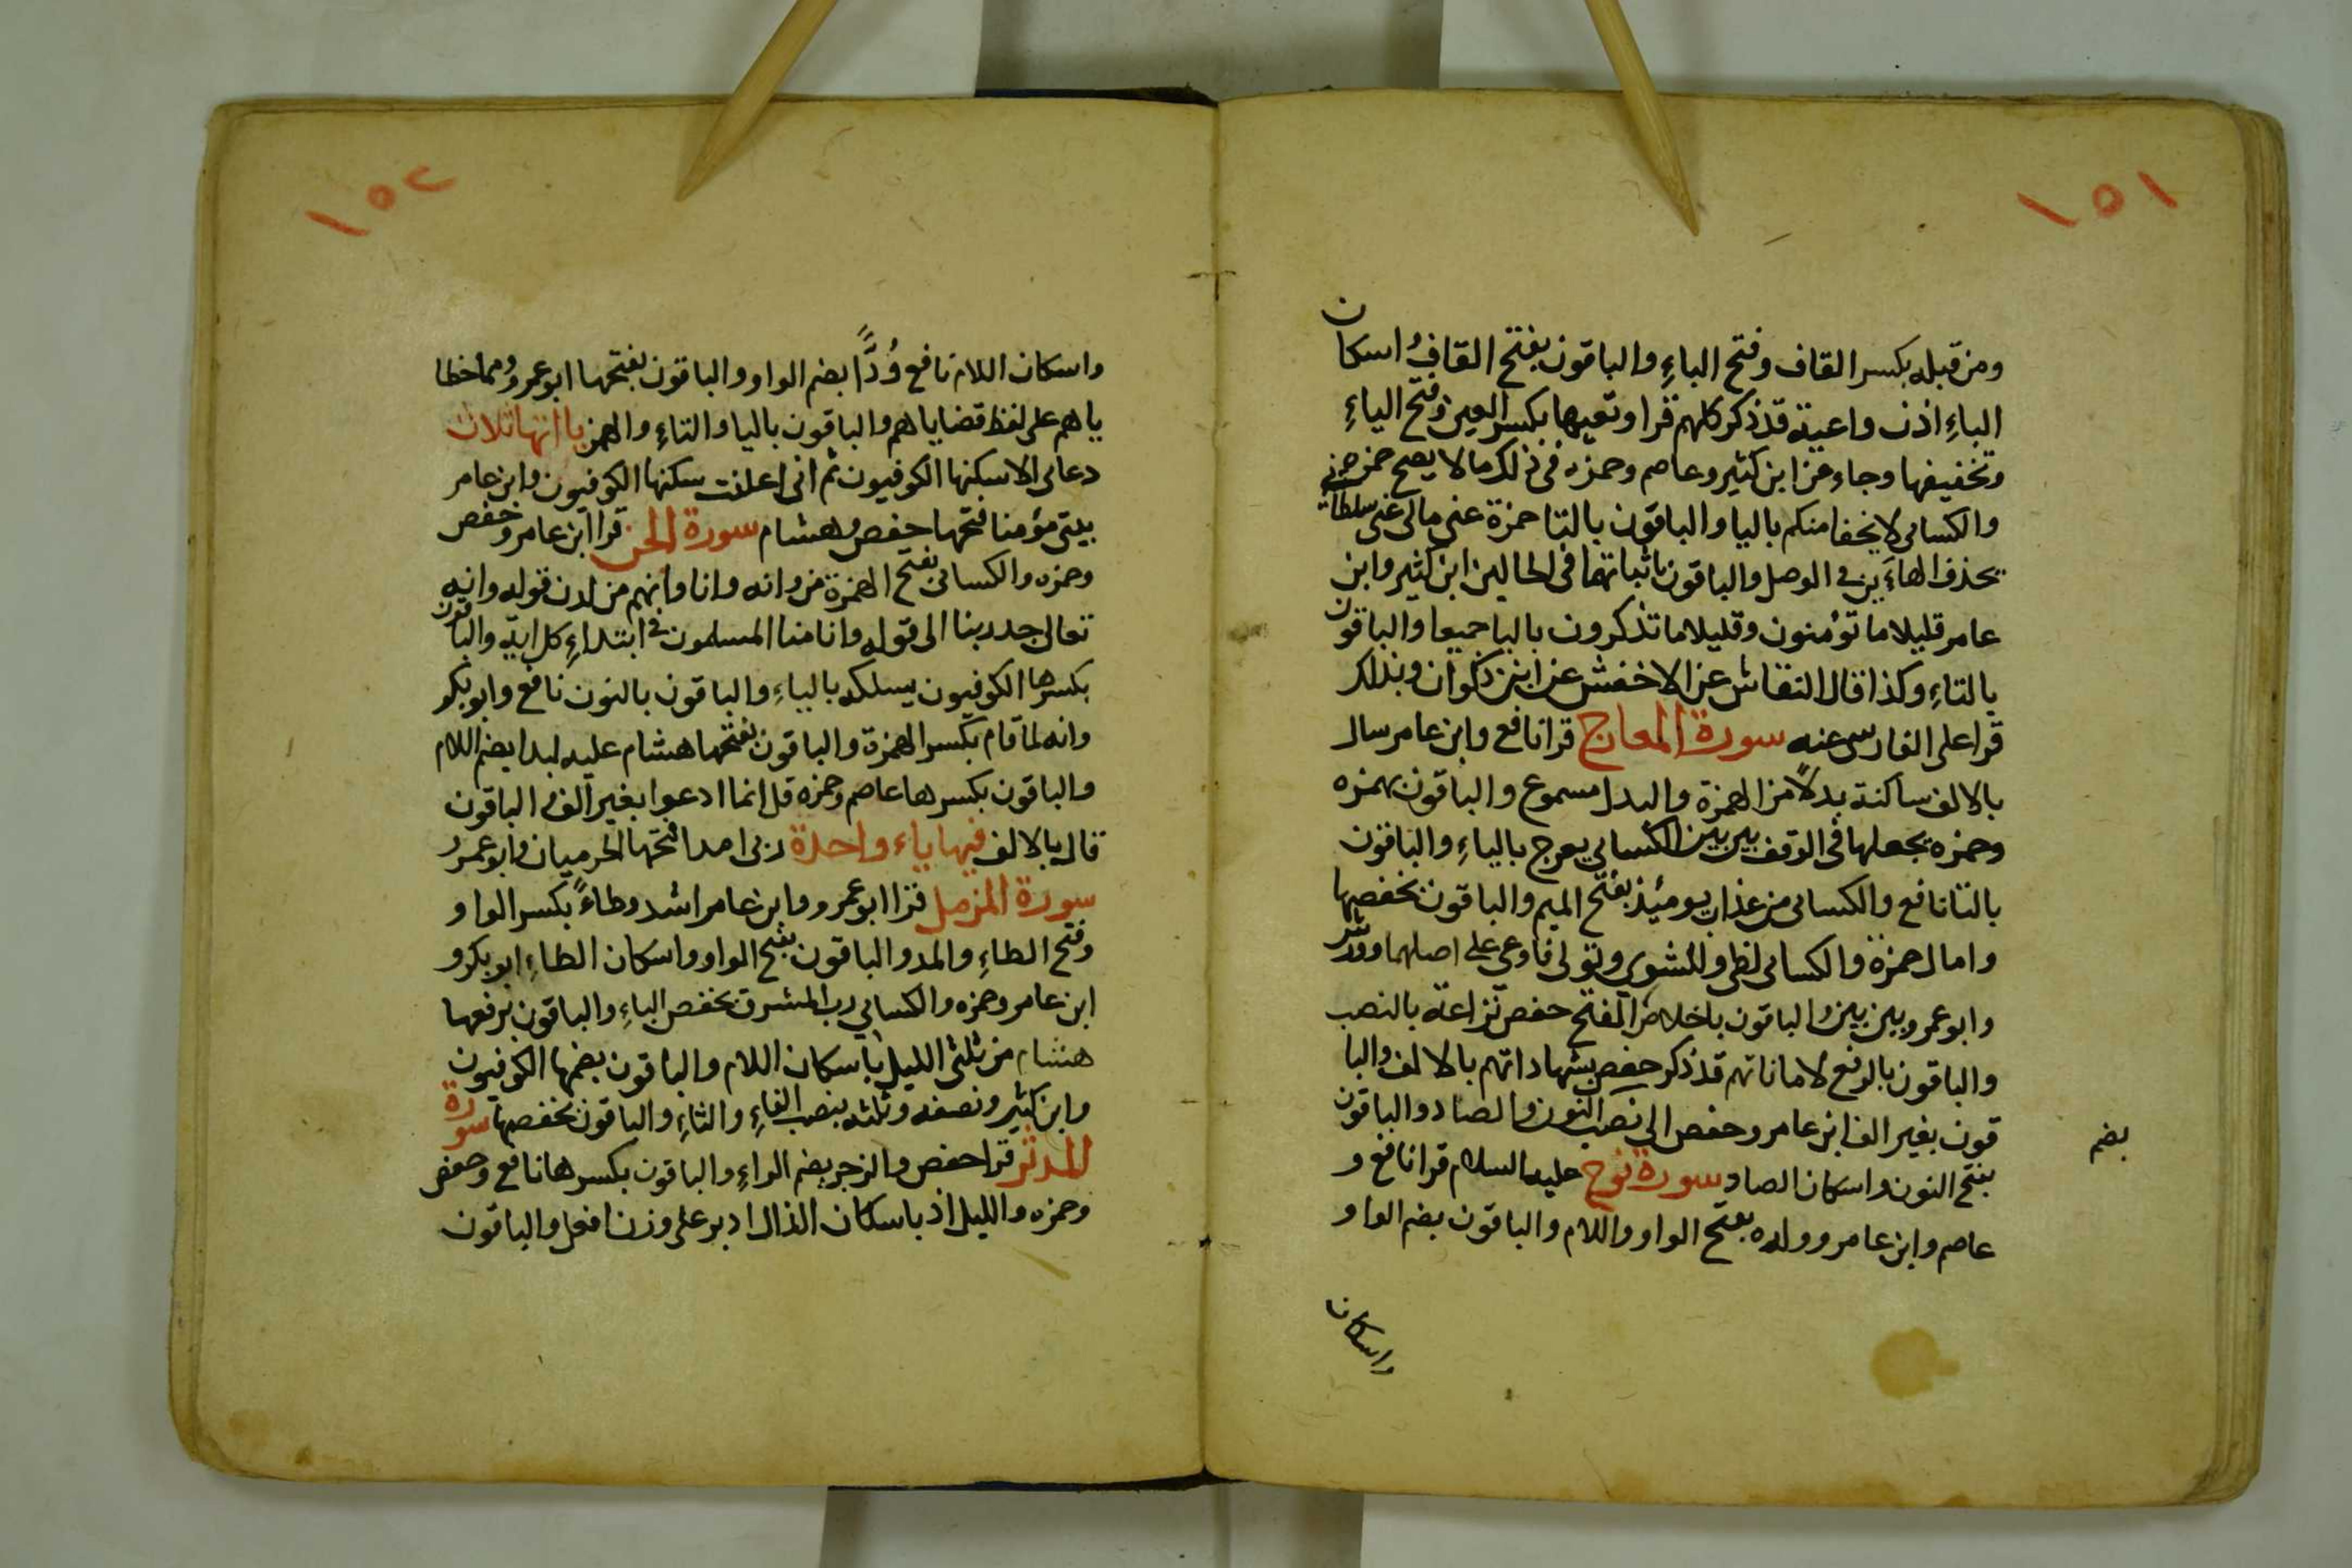 ١٥١
ومن قبله بكسر القاف وفتح الباءِ والباقون بفتح القاف و اسكان
الباءِ اذن واعية قد ذكر كلهم قرا وتعيها بكسر العين وفتح الياءِ
وتخفيفها وجاء عن ابن كثير وعاصم وحمزه فى ذلك ما لا يصح حمزه
والكسائى لا يخفا منكم باليا والباقون بالتا حمزة عنى مالى عنى سلطانى
بحذف الهاءَين فى الوصل والباقون باثباتها فى الحالين ابن كثير وابن
عامر قليلا ما تؤمنون وقليلا ما تذكرون باليا جميعا والباقون
بالتاءِ وكذا قال النقاش عن الاخفش عن ابن ذكوان وبذلك
قرا على الفارسى عنه سورة المعارج قرا نافع وابن عامر سال
بالالف ساكنة بدلاً من الهمزة والبدل مسموع والباقون بهمزه
وحمزه يجعلها فى الوقف بين بين الكسائى يعرج بالياءِ والباقون
بالتا نافع والكسائى من عذاب يومئذ بفتح الميم والباقون بخفضها
وامال حمزة والكسائى لظى وللشوى وتولى فاوعى على اصلهما وورش
وابو عمرو بين بين والباقون باخلاص الفتح حفص نزاعة بالنصب
والباقون بالرفع لاماناتهم قد ذكر حفص بشهاداتهم بالالف والبا
قون بغير الف ابن عامر وحفص الى نصب النون والصاد والباقون
بضم
بفتح النون واسكان الصاد سورة نوح عليه السلام قرا نافع و
عاصم وابن عامر وولده بفتح الواو واللام والباقون بضم الواو
واسكان
١٥٢
واسكان اللام نافع وُدًّا بضم الواو والباقون بفتحها ابو عمرو ومما خطا
ياهم على لفظ قضاياهم والباقون باليا والتاءِ والهمز يا اتها ثلاث
دعاى الا سكنها الكوفيون ثم انى اعلنت سكنها الكوفيون وابن عامر
بيتى مؤمنا فتحها حفص وهشام سورة الجن قرا ابن عامر وحفص
وحمزه والكسائى بفتح الهمزة من وانه وانا وانهم من لدن قوله وانه
تعالى جد ربنا الى قوله وانا منا المسلمون فى ابتداءِ كل ايه والباقون
بكسرها الكوفيون يسلكه بالياءِ والباقون بالنون نافع وابو بكر
وانه لما قام بكسر الهمزة والباقون بفتحها هشام عليه لبدا بضم اللام
والباقون بكسرها عاصم وحمزه قل انما ادعوا بغير الف الباقون
قال بالالف فيها ياء واحدة ربى امدا فتحها الحرميان وابو عمرو
سورة المزمل قرا ابو عمرو وابن عامر اشد وطاءً بكسر الواو
وفتح الطاءِ والمد والباقون بفتح الواو واسكان الطاءِ ابو بكر و
ابن عامر وحمزه والكسائى رب المشرق بخفض الباءِ والباقون برفعها
هشام من ثلثى الليل باسكان اللام والباقون بضمها الكوفيون
وابن كثير ونصفه وثلثه بنصب الفاءِ والثاءِ والباقون بخفضها سورة
المدثر قرا حفص والرجز بضم الراءِ والباقون بكسرها نافع وحفص
وحمزه والليل اذ باسكان الذال ادبر على وزن افعل والباقون